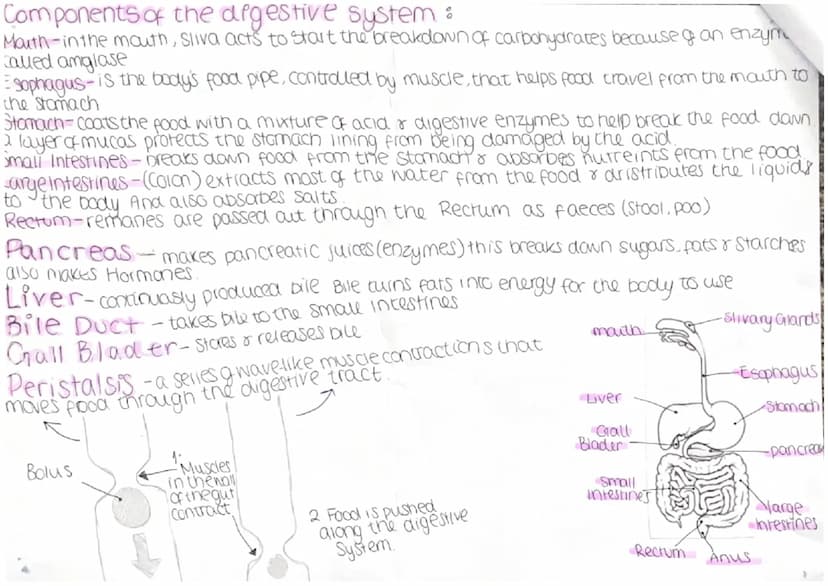 Components of the digestive system :
Mouth - in the mouth, sliva acts to start the breakdown of carbohydrates because of an enzym
called amglase
Esophagus - is the body's food pipe, controlled by muscle, that helps food travel from the mouth to
the stomach
Stomach - coats the food with a mixture of acid & digestive enzymes to help break the food down
a layer of mucas protects the stomach lining from being damaged by the acid.
Small Intestines - breaks down food from the stomach & absorbes nutreints from the food
Large intestines - (Colon) extracts most of the water from the food & distributes the liquids
to the body And also absorbes salts.
Rectum - remanes are passed out through the Rectum as faeces (stool, poo)
Pancreas - makes pancreatic juices (enzymes) this breaks down sugars, fats & starches
also makes Hormones.
Liver - continuasly produced bile Bile turns fats into energy for the body to use
Bile Duct - takes bile to the small intestines
Gall Blader - stores & releases bile
Peristalsis - a series of wave-like muscle contractions that
moves food through the digestive tract.
Bolus
1. Muscles
in the wall
of the gut
contract
2 Food is pushed
along the digestive
system.
mouth
Slivary Glands
Esophagus
Liver
Stomach
Gall
Blader
pancrea
Small
intestines
large
intestines
Rectum
Anus